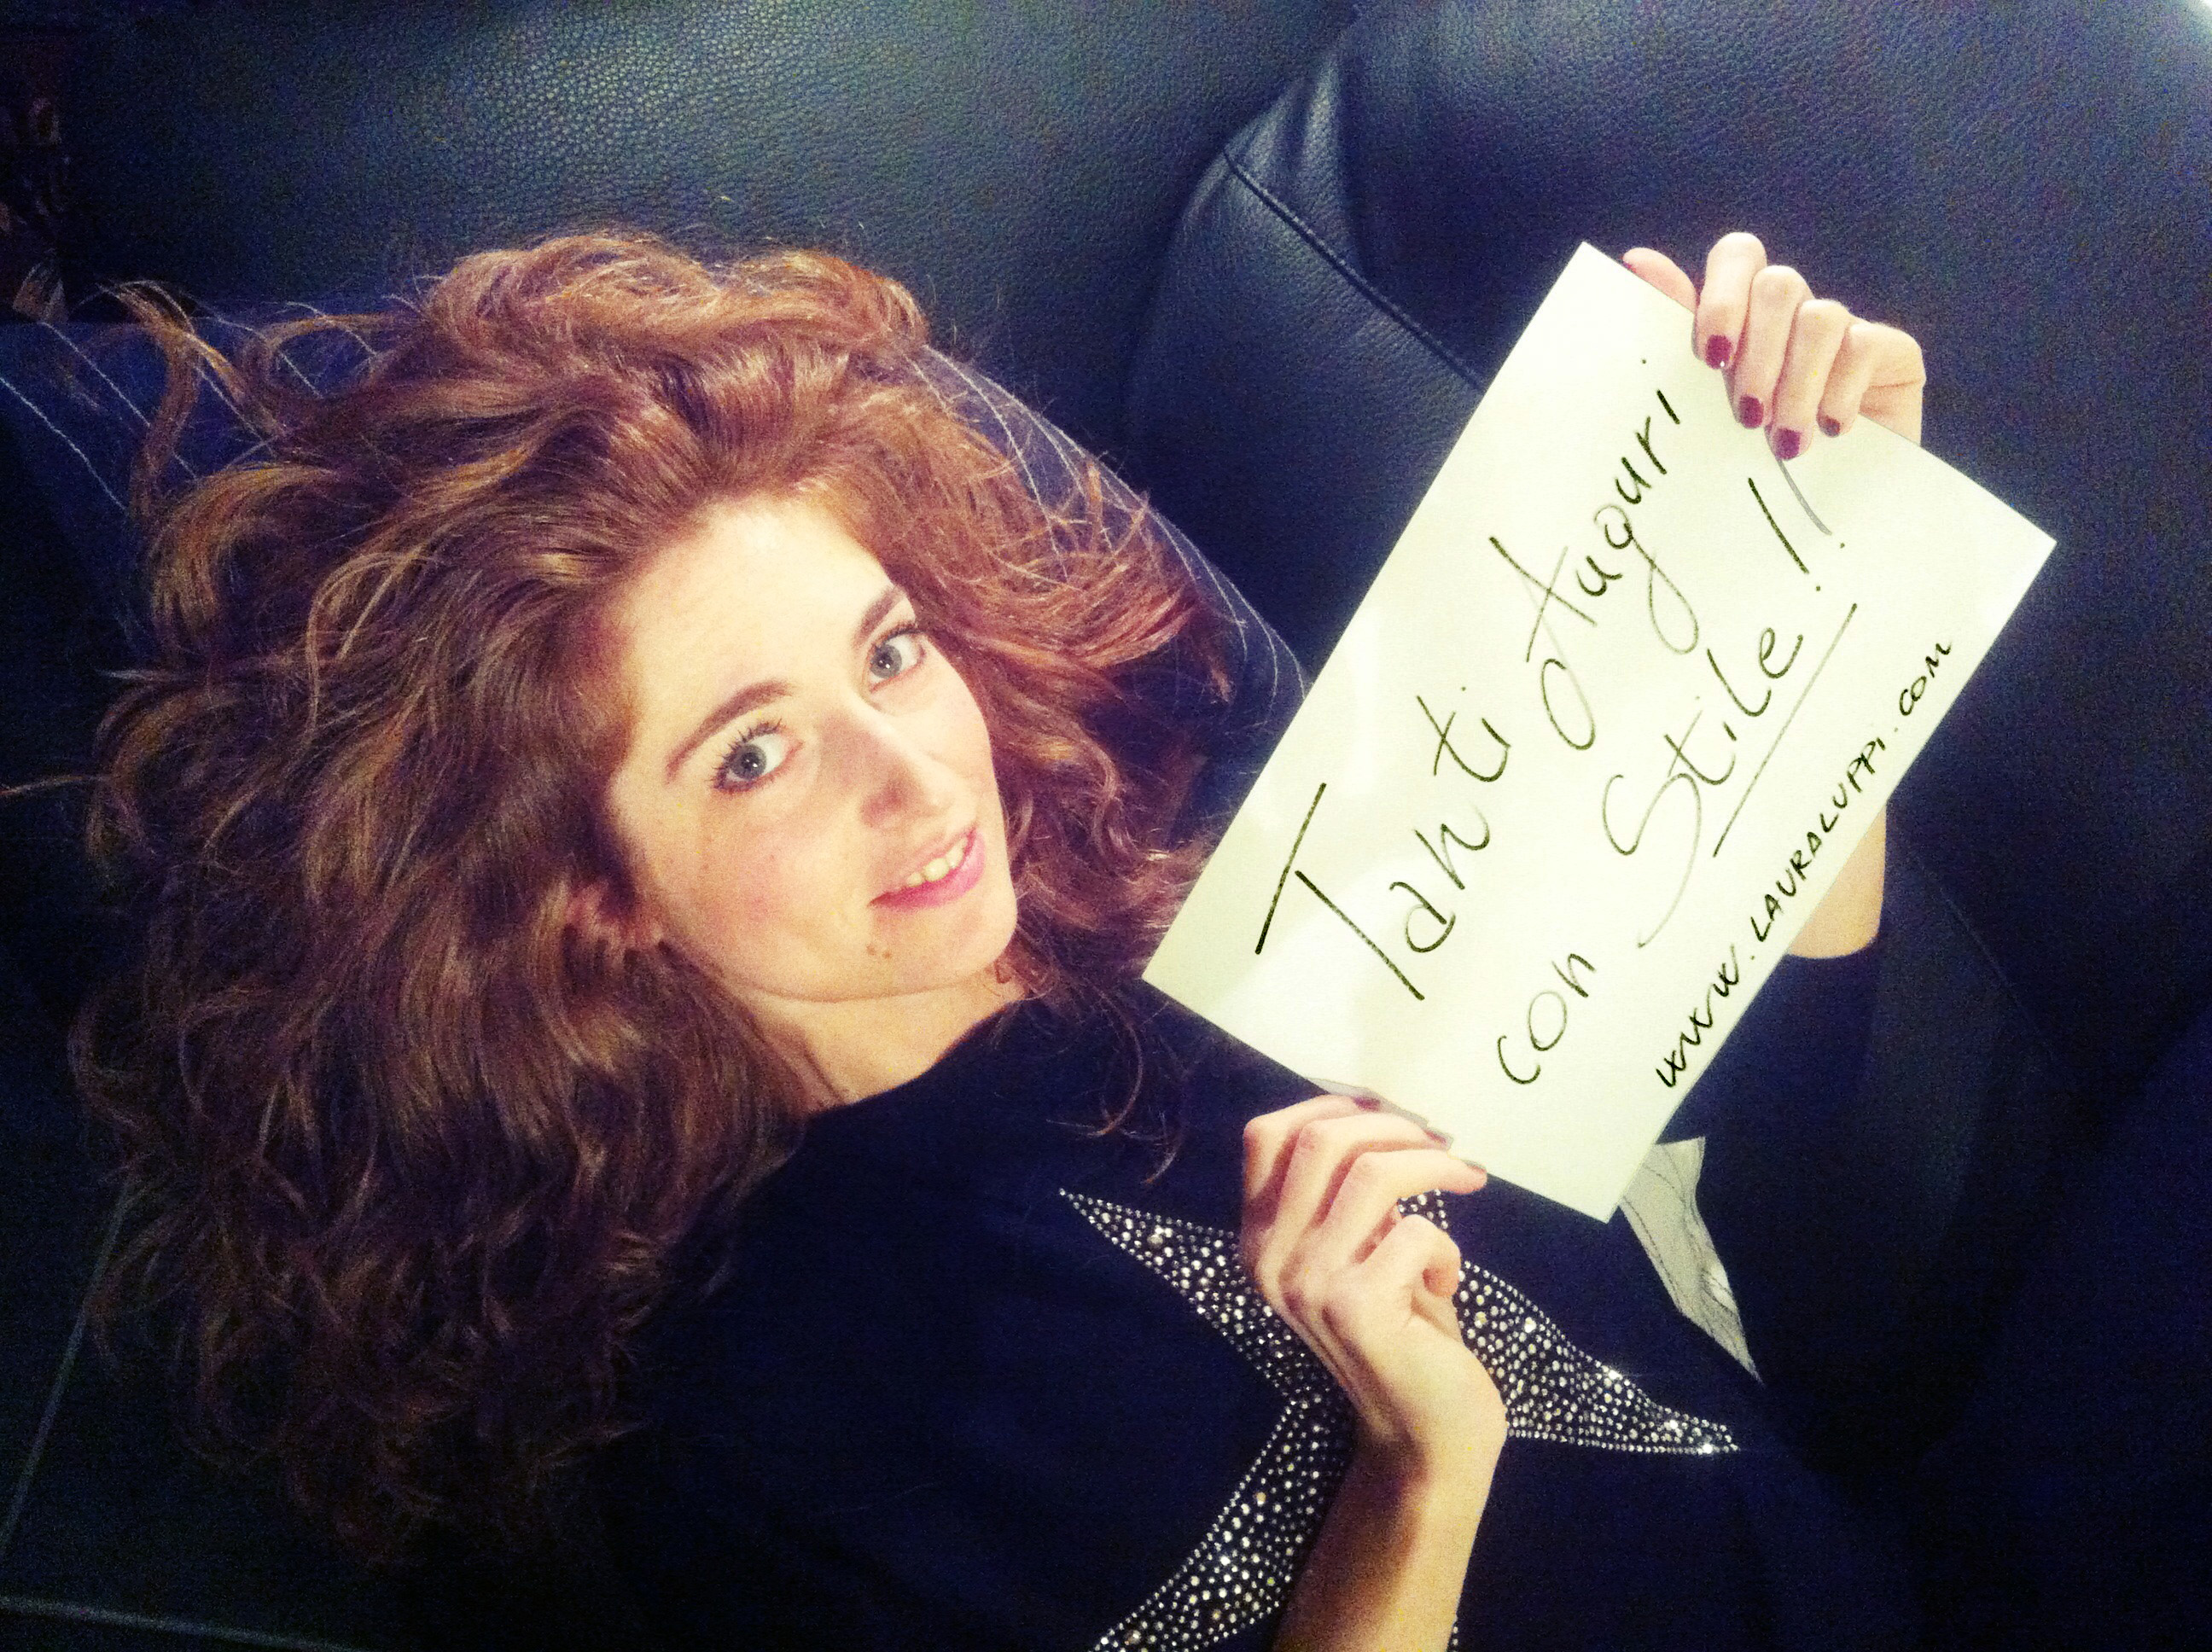 Tanti Auguri
con Stile!!
www.LAURALUPPI.COM